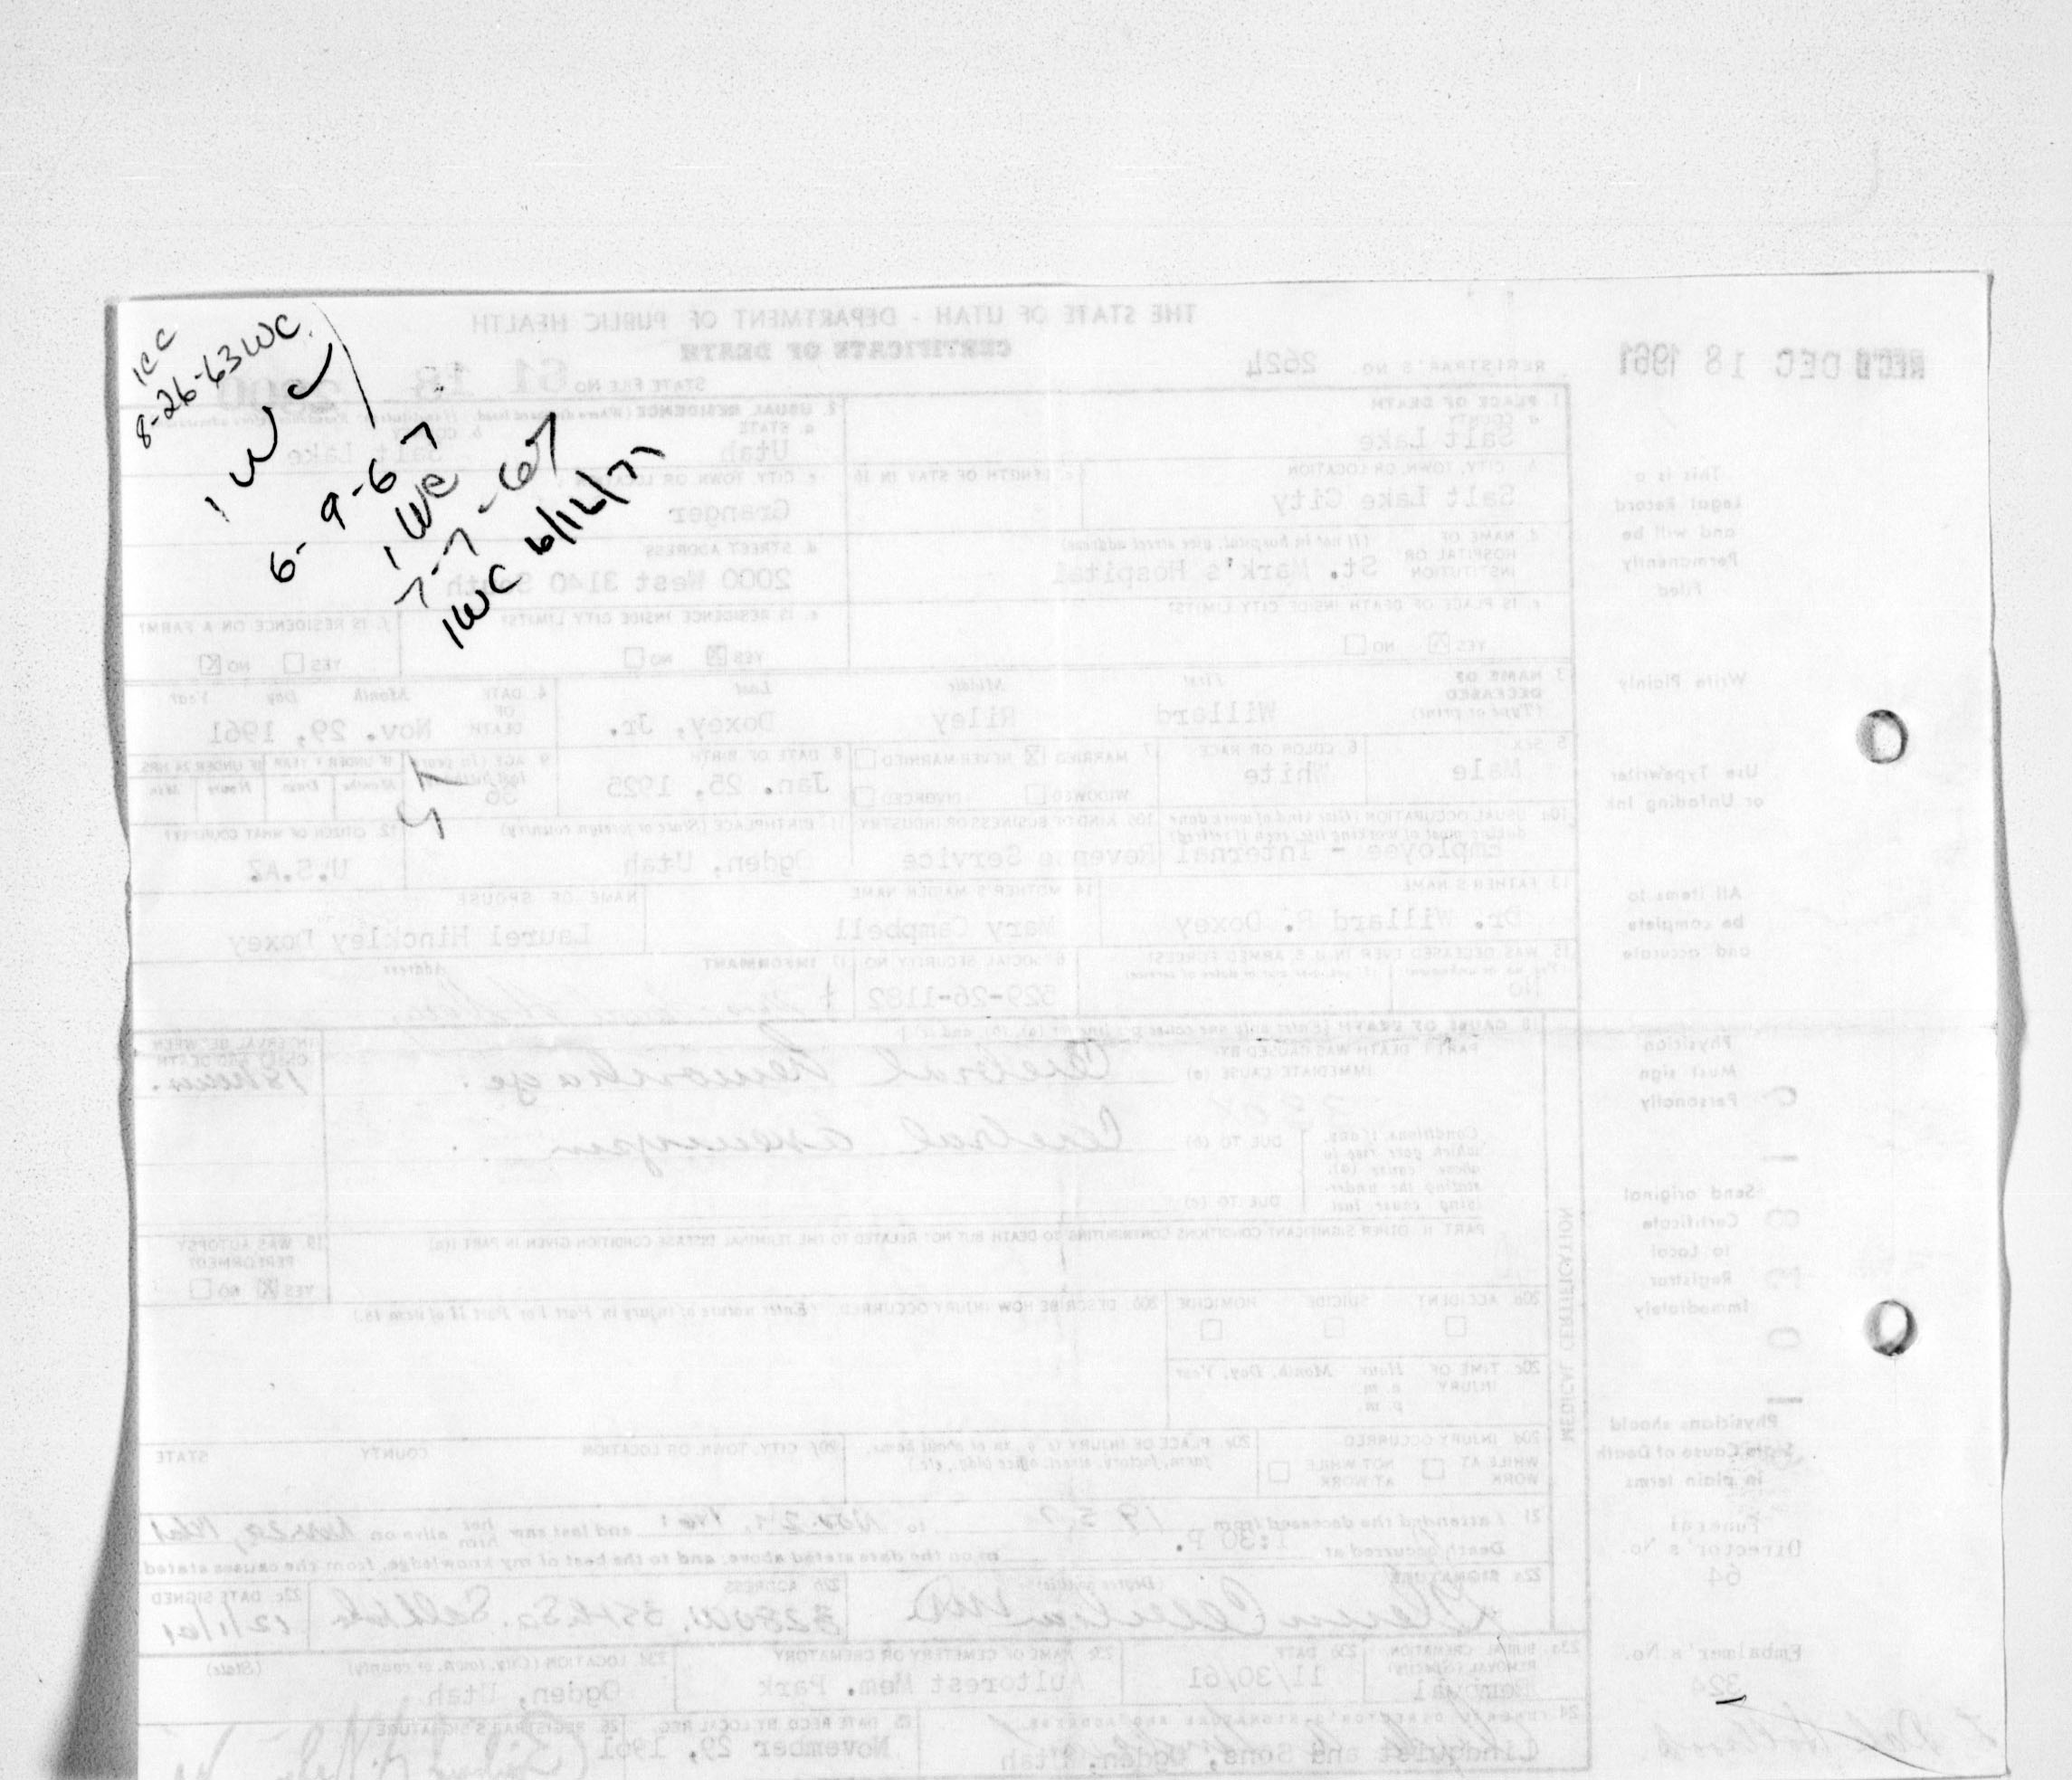 1CC
8-26-63 WC.
1 WC
6-9-67
1 WC
7-7-67
1WC 6/12/77
THE STATE OF UTAH - DEPARTMENT OF PUBLIC HEALTH
CERTIFICATE OF DEATH
REC'D DEC 18 1961
REGISTRAR'S NO. 2624
STATE FILE NO. 61 18
1. PLACE OF DEATH
a. COUNTY
Salt Lake
2. USUAL RESIDENCE
a. STATE
Utah
b. COUNTY
Salt Lake
b. CITY, TOWN, OR LOCATION
Salt Lake City
c. LENGTH OF STAY IN 1b
c. CITY, TOWN OR LOCATION
Granger
d. NAME OF HOSPITAL OR INSTITUTION (If not in hospital, give street address)
St. Mark's Hospital
d. STREET ADDRESS
2000 West 3140 South
e. IS PLACE OF DEATH INSIDE CITY LIMITS?
YES X NO
e. IS RESIDENCE INSIDE CITY LIMITS?
YES X NO
f. IS RESIDENCE ON A FARM?
YES NO X
3. NAME OF DECEASED (Type or print)
First Middle Last
Willard Riley Doxey, Jr.
4. DATE OF DEATH Month Day Year
Nov. 29, 1961
5. SEX
Male
6. COLOR OR RACE
White
7. MARRIED X NEVER MARRIED
WIDOWED DIVORCED
8. DATE OF BIRTH
Jan. 25, 1925
9. AGE (In years last birthday)
36
IF UNDER 1 YEAR IF UNDER 24 HRS.
Months Days Hours Min.
10a. USUAL OCCUPATION (Give kind of work done during most of working life, even if retired)
10b. KIND OF BUSINESS OR INDUSTRY
Employee - Internal Revenue Service
11. BIRTHPLACE (State or foreign country)
Ogden, Utah
12. CITIZEN OF WHAT COUNTRY?
U.S.A.
13. FATHER'S NAME
Dr. Willard R. Doxey
14. MOTHER'S MAIDEN NAME
Mary Campbell
NAME OF SPOUSE
Laurel Hinckley Doxey
15. WAS DECEASED EVER IN U.S. ARMED FORCES?
No
16. SOCIAL SECURITY NO.
529-26-1182
17. INFORMANT Address
18. CAUSE OF DEATH [Enter only one cause per line for (a), (b), and (c).]
PART I. DEATH WAS CAUSED BY:
IMMEDIATE CAUSE (a) Cerebral hemorrhage
INTERVAL BETWEEN ONSET AND DEATH
Conditions, if any, which gave rise to above cause (a), stating the underlying cause last
DUE TO (b) Cerebral aneurysm
DUE TO (c)
PART II. OTHER SIGNIFICANT CONDITIONS CONTRIBUTING TO DEATH BUT NOT RELATED TO THE TERMINAL DISEASE CONDITION GIVEN IN PART I(a)
19. WAS AUTOPSY PERFORMED?
YES X NO
20a. ACCIDENT SUICIDE HOMICIDE
20b. DESCRIBE HOW INJURY OCCURRED. (Enter nature of injury in Part I or Part II of item 18.)
20c. TIME OF INJURY Hour Month, Day, Year
a. m.
p. m.
20d. INJURY OCCURRED
WHILE AT WORK NOT WHILE AT WORK
20e. PLACE OF INJURY (e. g., in or about home, farm, factory, street, office bldg., etc.)
20f. CITY, TOWN, OR LOCATION COUNTY STATE
MEDICAL CERTIFICATION
21. I attended the deceased from to Nov. 29, 1961 and last saw her him alive on Nov 29, 1961
Death occurred at 1:30 P. m on the date stated above; and to the best of my knowledge, from the causes stated
22a. SIGNATURE (Degree or title)
22b. ADDRESS
22c. DATE SIGNED
12/1/61
23a. BURIAL, CREMATION, REMOVAL (Specify)
Removal
23b. DATE
11/30/61
23c. NAME OF CEMETERY OR CREMATORY
Aultorest Mem. Park
23d. LOCATION (City, town, or county) (State)
Ogden, Utah
24. FUNERAL DIRECTOR'S SIGNATURE AND ADDRESS
Lindquist and Sons, Ogden, Utah
25. DATE RECD BY LOCAL REG.
November 29, 1961
26. REGISTRAR'S SIGNATURE
This is a
Legal Record
and will be
Permanently
Filed
Write Plainly
Use Typewriter
or Unfading Ink
All items to
be complete
and accurate
Physician
Must sign
Personally
Send original
Certificate
to Local
Registrar
Immediately
Physicians should
State Cause of Death
in plain terms
Funeral
Director's No.
64
Embalmer's No.
324